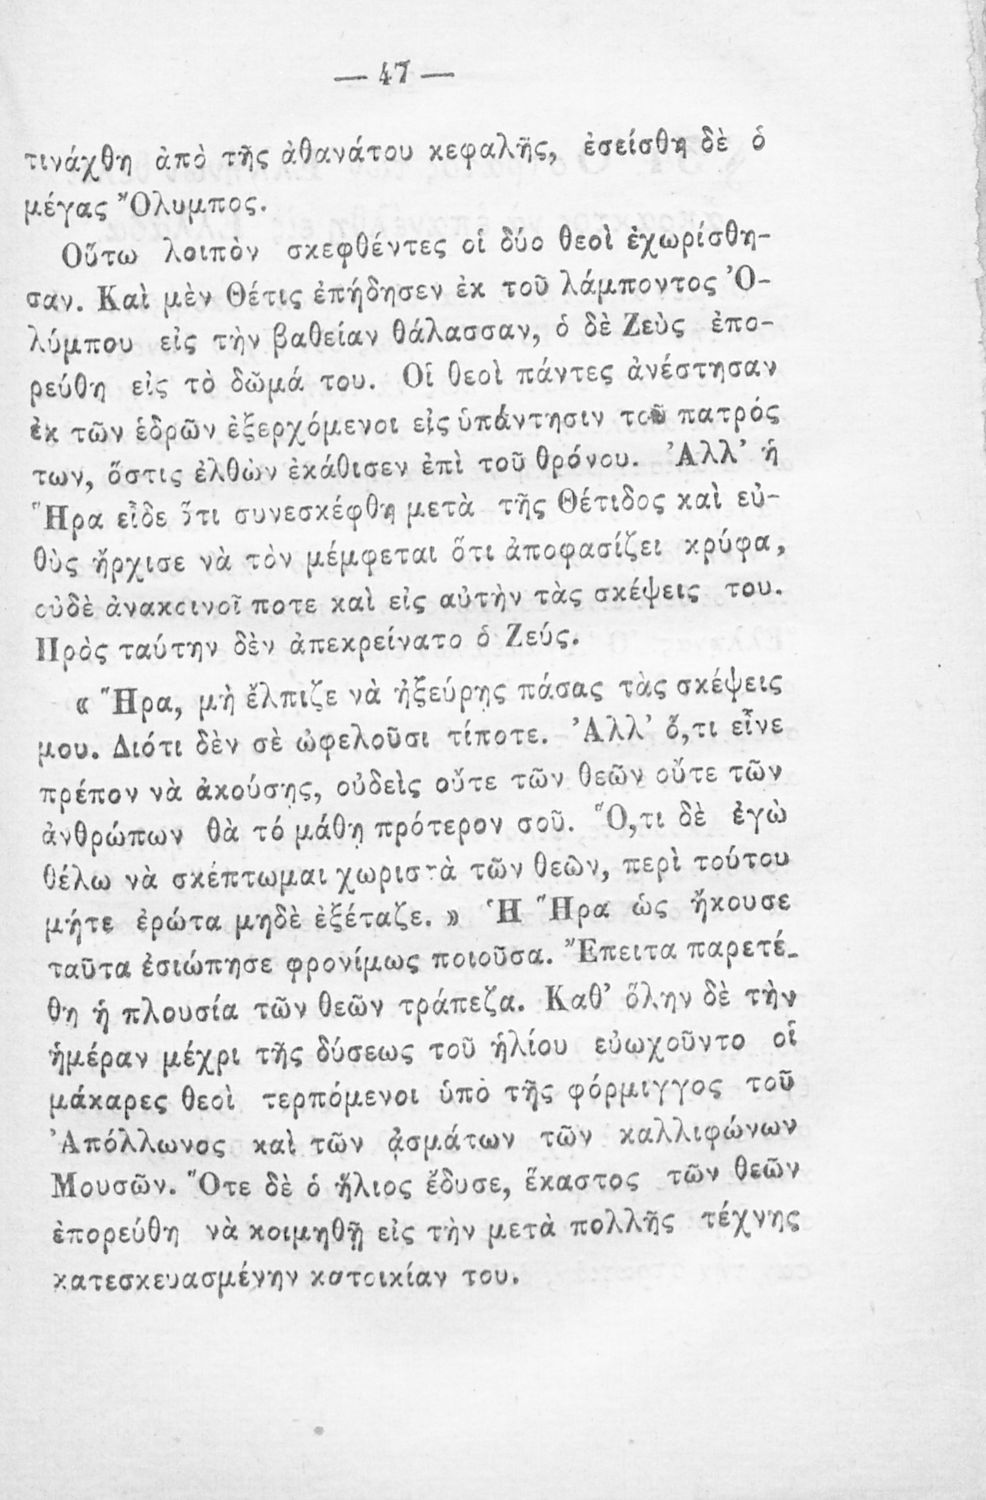 — 47 —
τινάχθη ἀπὸ τῆς ἀθανάτου κεφαλῆς, ἐσείσθη δὲ ὁ
μέγας Ὄλυμπος.
Οὕτω λοιπὸν σκεφθέντες οἱ δύο θεοὶ ἐχωρίσθη-
σαν. Καὶ μὲν Θέτις ἐπήδησεν ἐκ τοῦ λάμποντος Ὀ-
λύμπου εἰς τὴν βαθείαν θάλασσαν, ὁ δὲ Ζεὺς ἐπο-
ρεύθη εἰς τὸ δῶμά του. Οἱ θεοὶ πάντες ἀνέστησαν
ἐκ τῶν ἑδρῶν ἐξερχόμενοι εἰς ὑπάντησιν τοῦ πατρός
των, ὅστις ἐλθὼν ἐκάθισεν ἐπὶ τοῦ θρόνου. Ἀλλ’ ἡ
Ἥρα εἶδε ὅτι συνεσκέφθη μετὰ τῆς Θέτιδος καὶ εὐ-
θὺς ἤρχισε νὰ τὸν μέμφεται ὅτι ἀποφασίζει κρύφα,
οὐδὲ ἀνακοινοῖ ποτε καὶ εἰς αὐτὴν τὰς σκέψεις του.
Πρὸς ταύτην δὲν ἀπεκρείνατο ὁ Ζεύς.
« Ἥρα, μὴ ἔλπιζε νὰ ἠξεύρῃς πάσας τὰς σκέψεις
μου. Διότι δὲν σὲ ὠφελοῦσι τίποτε. Ἀλλ’ ὅ,τι εἶνε
πρέπον νὰ ἀκούσῃς, οὐδεὶς οὔτε τῶν θεῶν οὔτε τῶν
ἀνθρώπων θὰ τό μάθῃ πρότερον σοῦ. Ὅ,τι δὲ ἐγὼ
θέλω νὰ σκέπτωμαι χωριστὰ τῶν θεῶν, περὶ τούτου
μήτε ἐρώτα μηδὲ ἐξέταζε. » Ἡ Ἥρα ὡς ἤκουσε
ταῦτα ἐσιώπησε φρονίμως ποιοῦσα. Ἔπειτα παρετέ-
θη ἡ πλουσία τῶν θεῶν τράπεζα. Καθ’ ὅλην δὲ τὴν
ἡμέραν μέχρι τῆς δύσεως τοῦ ἡλίου εὐωχοῦντο οἱ
μάκαρες θεοὶ τερπόμενοι ὑπὸ τῆς φόρμιγγος τοῦ
Ἀπόλλωνος καὶ τῶν ᾀσμάτων τῶν καλλιφώνων
Μουσῶν. Ὅτε δὲ ὁ ἥλιος ἔδυσε, ἕκαστος τῶν θεῶν
ἐπορεύθη νὰ κοιμηθῇ εἰς τὴν μετὰ πολλῆς τέχνης
κατεσκευασμένην κατοικίαν του.